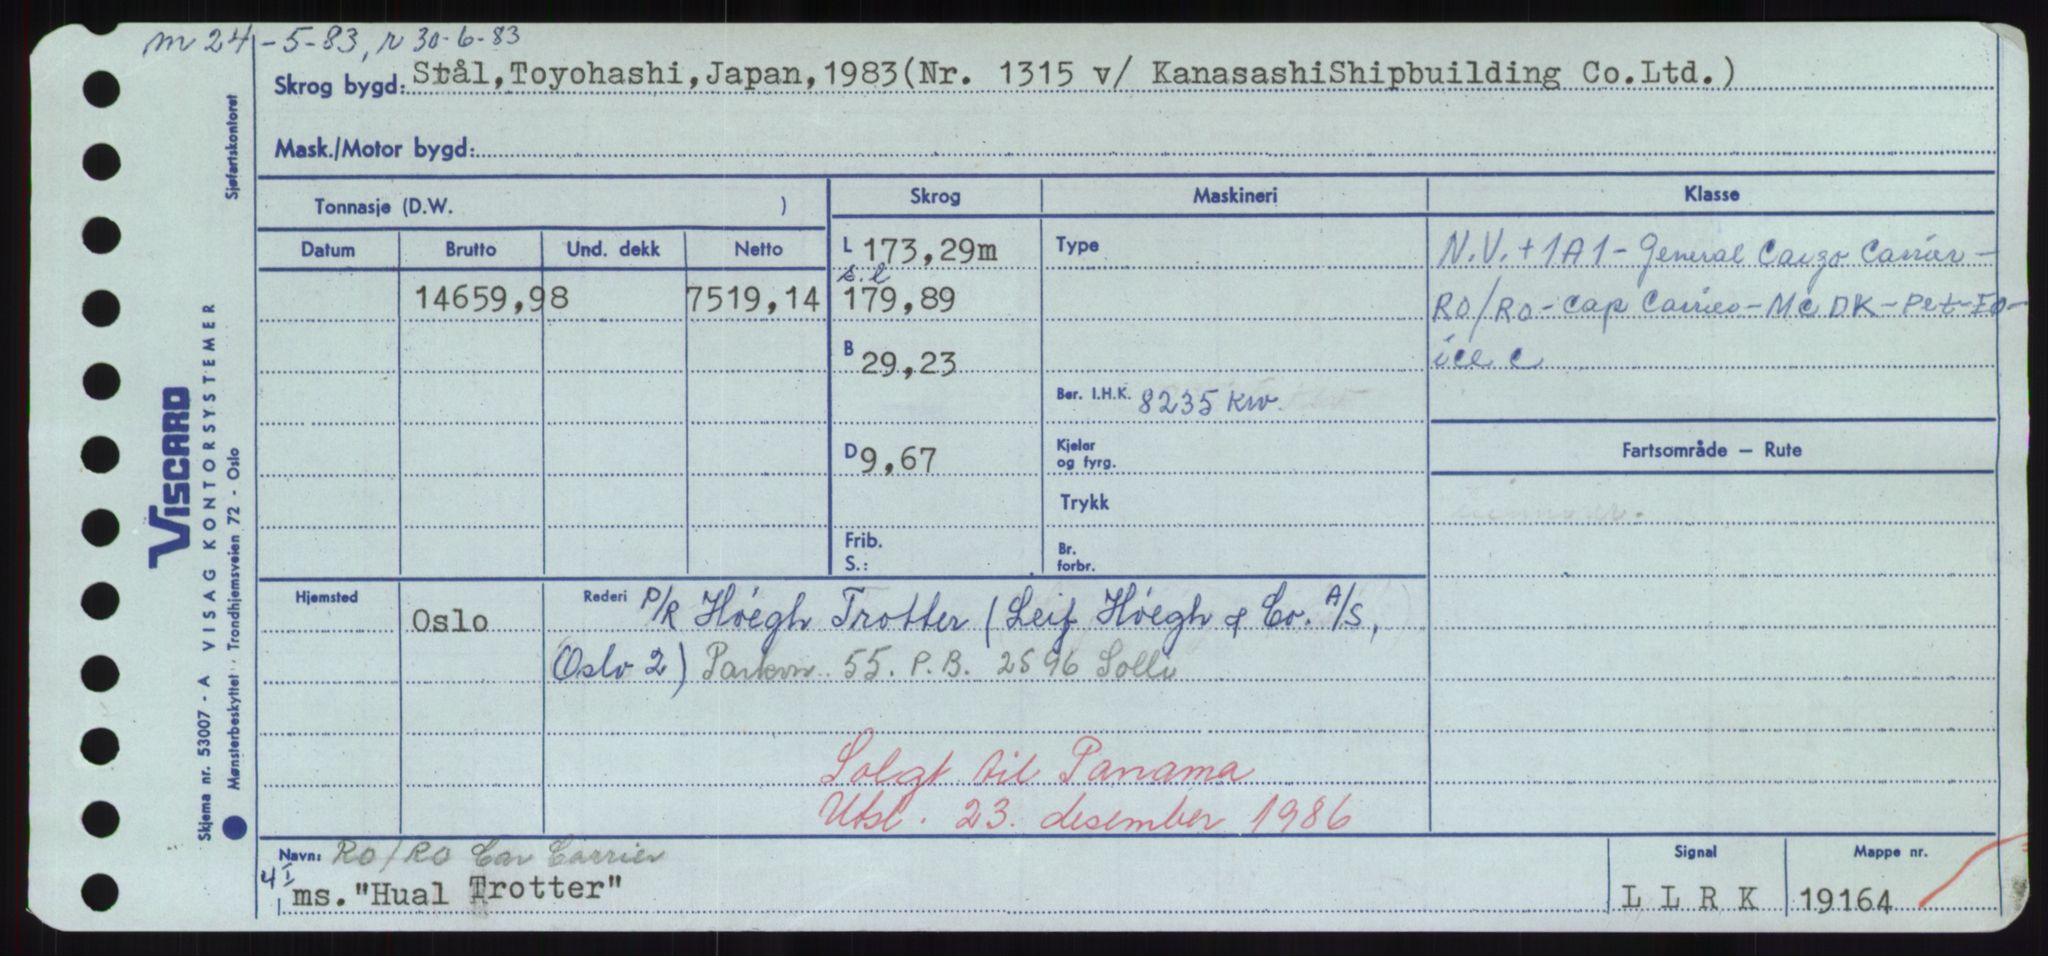 m 24-5-83, r 30-6-83
Skrog bygd: Stål,Toyohashi,Japan,1983(Nr. 1315 v/ KanasashiShipbuilding Co.Ltd.)
Mask./Motor bygd:
Tonnasje (D.W. )
Skrog Maskineri Klasse
Datum Brutto Und. dekk Netto
L 173,29m Type N.V. + 1A1 - General Cargo Carrier -
s.l
14659,98 7519,14 179,89 RO/RO - Car Carrier - Mc DK - Pet - IO -
B 29,23 ice c
Ber. I.H.K. 8235 kw.
D 9,67 Kjeler og fyrg. Fartsområde — Rute
Trykk
Frib. S.: Br. forbr.
Hjemsted Oslo Rederi P/R Höegh Trotter (Leif Höegh & Co. A/S,
Oslo 2) Parkvn. 55. P.B. 2596 Solli
Solgt til Panama
Utsl. 23. desember 1986
Navn: RO/RO Car Carrier Signal Mappe nr.
4 I
1 ms."Hual Trotter" L L R K 19164
VISCARD
Skjema nr. 53007 - A VISAG KONTORSYSTEMER
Mønsterbeskyttet - Trondhjemsveien 72 - Oslo
Sjøfartskontoret